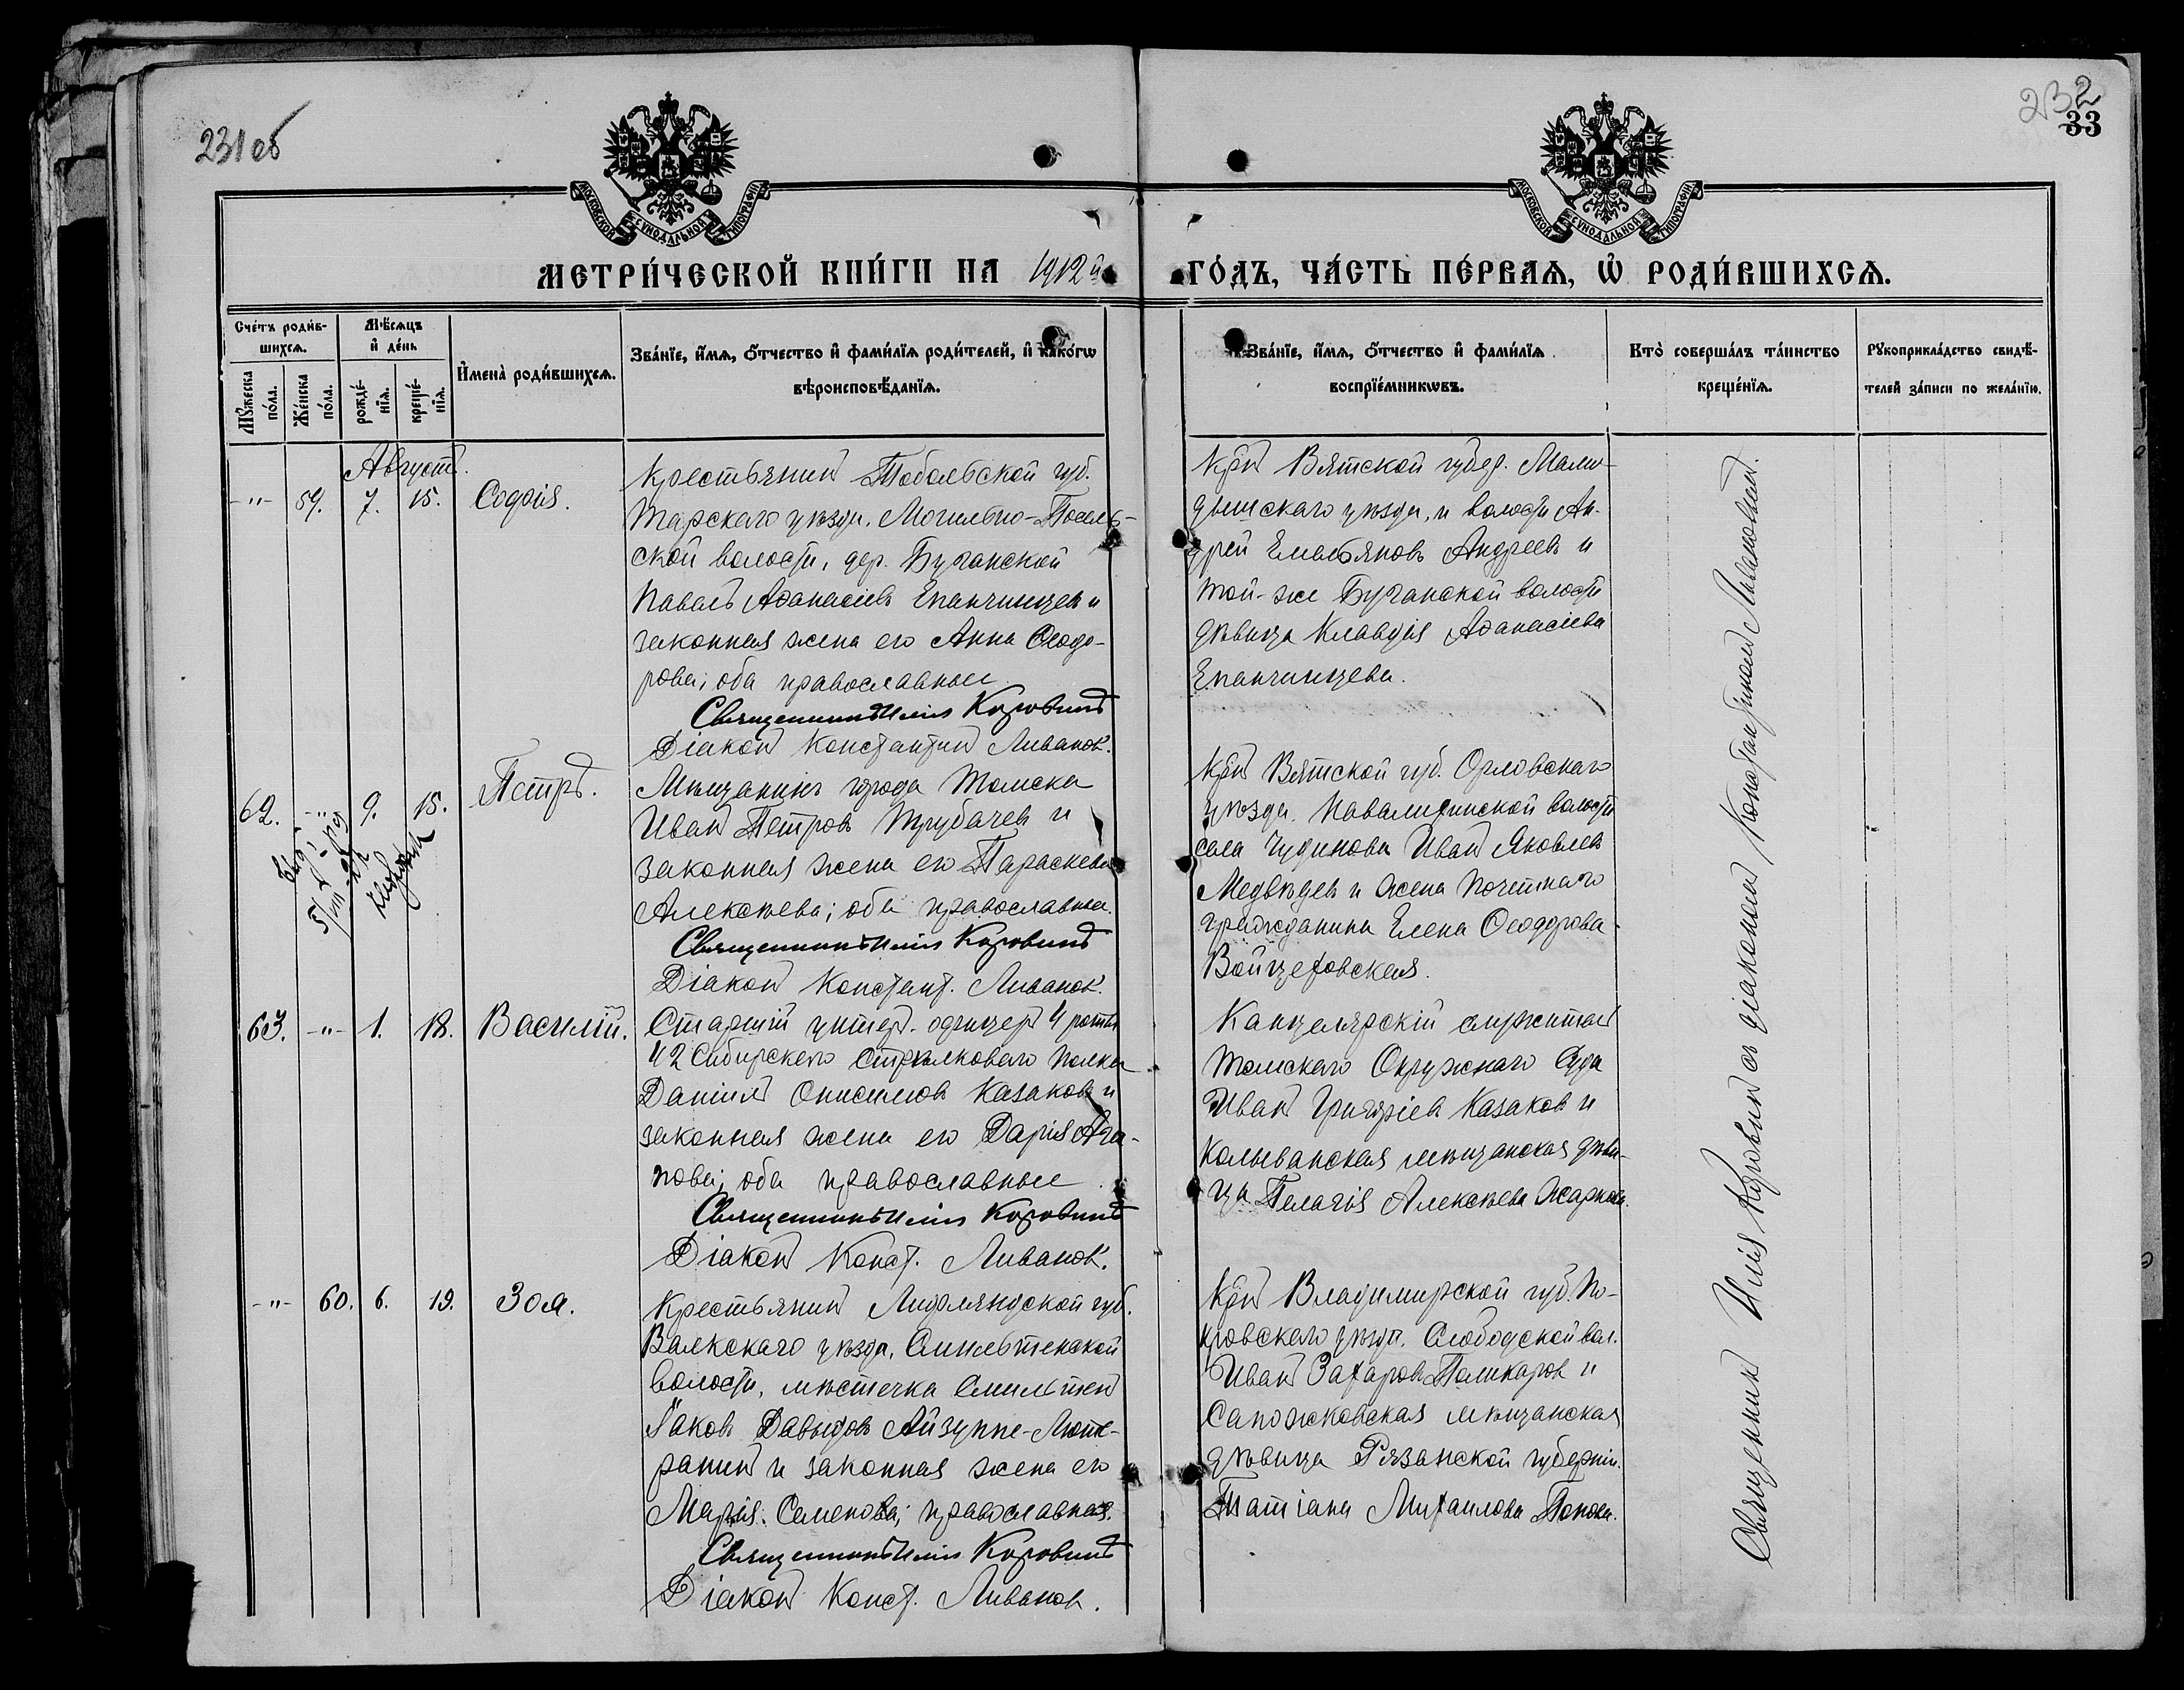 231 об
232
33
МОСКОВСКОЙ СѴНОДАЛЬНОЙ ТИПОГРАФІИ
МОСКОВСКОЙ СѴНОДАЛЬНОЙ ТИПОГРАФІИ
МЕТРИ́ЧЕСКОЙ КНИ́ГИ НА 1912 й
ГО́ДЪ, ЧА́СТЬ ПЕ́РВАѦ, Ѡ҆ РОДИ́ВШИХСѦ.
Сче́тъ роди́в-
шихсѧ.
Мѣ́сѧцъ
и҆ де́нь
Мꙋ́жеска
по́ла.
Же́нска
по́ла.
рожде́-
нїѧ.
креще́-
нїѧ.
И҆мена̀ роди́вшихсѧ.
Зва́нїе, и҆́мѧ, ѻ҆́тчество и҆ фамѝлїѧ роди́телей, и҆ како́гѡ
вѣроисповѣ́данїѧ.
Зва́нїе, и҆́мѧ, ѻ҆́тчество и҆ фами́лїѧ
воспрїе́мникѡвъ.
Кто̀ соверша́лъ та́инство
креще́нїѧ.
Рꙋкоприкла́дство свидѣ́-
телей за́писи по жела́нїю.
Августъ.
-"- 59. 7. 15. Софія.
Крестьянинъ Тобольской губ.
Тарскаго уѣзда, Могильно-Посель-
ской волости, дер. Бучанской
Павелъ Аѳанасіевъ Епанчинцевъ и
законная жена его Анна Ѳеодо-
рова; оба православные
Священникъ Илія Коровинъ
Діаконъ Константинъ Ливановъ.
Крн̃ъ Вятской губер. Малм-
ыжскаго уѣзда, и волости Ан-
дрей Емельяновъ Андреевъ и
той-же Бучанской волости
дѣвица Клавдія Аѳанасіева
Епанчинцева.
62. -"- 9. 15. Петръ.
Мѣщанинъ города Томска
Иванъ Петровъ Трубачевъ и
законная жена его Параскева
Алексѣева; оба православные.
Священникъ Илія Коровинъ
Діаконъ Констант. Ливановъ.
Крн̃ъ Вятской губ. Орловскаго
уѣзда, волости
села Чудинова Иванъ Яковлевъ
Медвѣдевъ и жена почетнаго
гражданина Елена Ѳеодорова
Войцеховская.
63. -"- 1. 18. Василій.
Старшій унтер. офицеръ 4 роты
42 Сибирскаго стрѣлковаго полка
Даніилъ Онисимовъ Казаковъ и
законная жена его Дарія Ага-
пова; оба православные
Священникъ Илія Коровинъ
Діаконъ Конст. Ливановъ.
Канцелярскій служитель
Томскаго Окружнаго Суда
Иванъ Григоріевъ Казаковъ и
Колыванская мѣщанская дѣви-
ца Пелагія Алексѣева Жаркова.
-"- 60. 6. 19. Зоя.
Крестьянинъ Лифляндской губ.
Валкскаго уѣзда, Смильтенской
волости, мѣстечка Смильтенъ
Іаковъ Давыдовъ Айзуппе-Люте-
ранинъ и законная жена его
Марія Семенова; православная.
Священникъ Илія Коровинъ
Діаконъ Конст. Ливановъ.
Крн̃ъ Владимирской губ. По-
кровскаго уѣзда, Слободской вол.
Иванъ Захаровъ Поликаровъ и
Сапожковская мѣщанская
дѣвица Рязанской губерніи
Татіана Михаилова Попова.
Священникъ Илія Коровинъ съ діакономъ Константиномъ Ливановымъ.